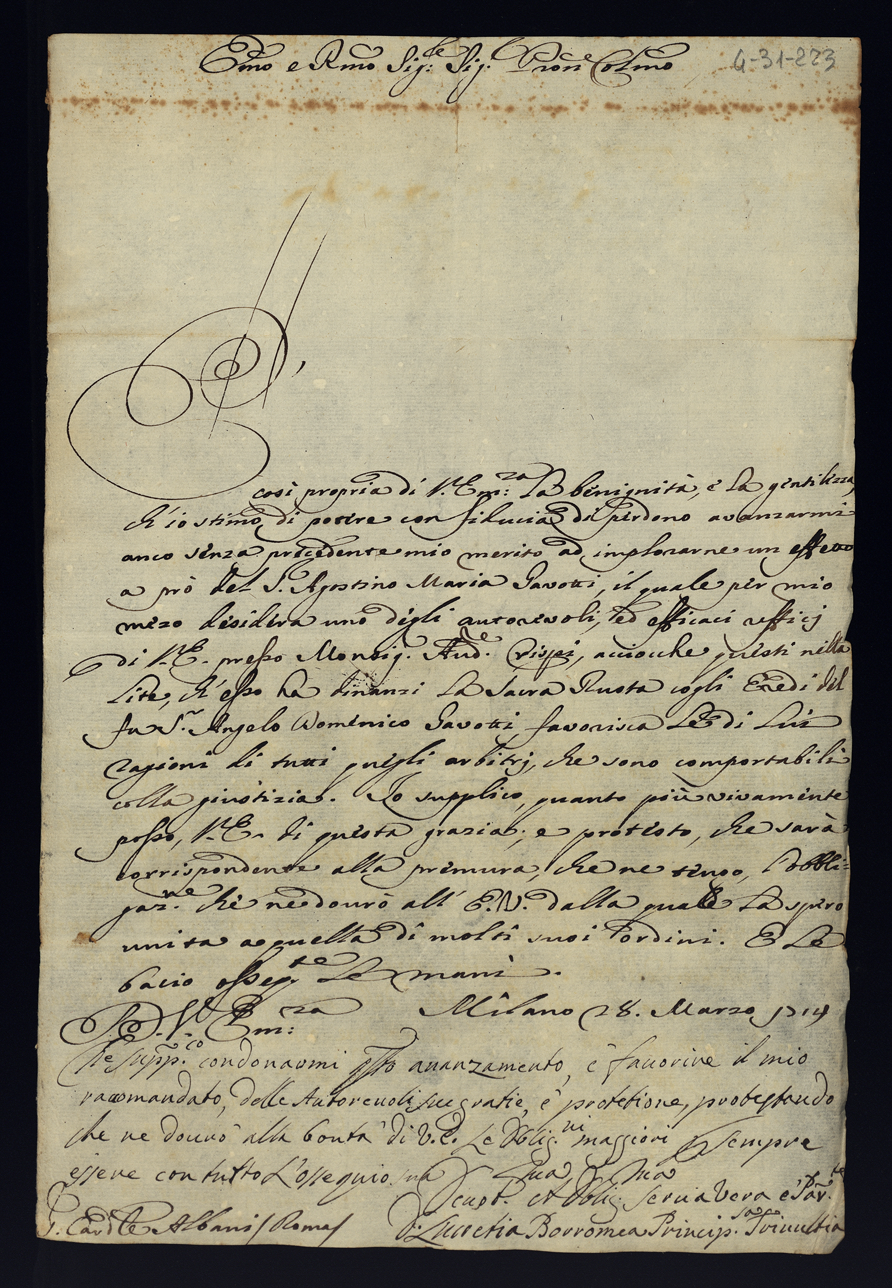 Emo e Rmo Sig.re Sig.r Pron Colmo
4-31-223
È così propria di V. Em.za la benignità, e la gentilezza,
ch'io stimo di potere con fiducia di perdono avanzarmi
anco senza precedente mio merito ad implorarne un effetto
a prò del S. Agostino Maria Gavotti, il quale per mio
mezo desidera uno degli autorevoli, ed efficaci ufficj
di V. E. presso Monsig. Aud.e Crispi, acciocche questi nella
Lite, ch'esso ha dinanzi la Sacra Ruota cogli Eredi del
fu S.r Angelo Domenico Gavotti favorisca le di Lui
ragioni di tutti quegli arbitrj, che sono comportabili
colla giustizia. Io supplico, quanto più vivamente
posso, V. E. di questa grazia; e protesto, che sarà
corrispondente alla premura, che ne tengo, l'obbli-
gaz.ne che ne dourò all' E. V. dalla quale la spero
unita a quella di molti suoi ordini. E Le
bacio osseq.te le mani.
D. V. Em.za Milano 28. Marzo 1714
la supp.co condonarmi qsto avanzamento, e favorire il mio
racomandato, delle Autorevoli sue gratie, e protetione, protestando
che ne dourò alla bontà di V. E. le Oblig.ni maggiori sempre
essere con tutto l'ossequio sua
Sua Sua
Deuot. et Oblig. serua vera e Par.te
S. Card.le Albani / Roma /
D. Lucretia Borromea Princip.sa Trivultia